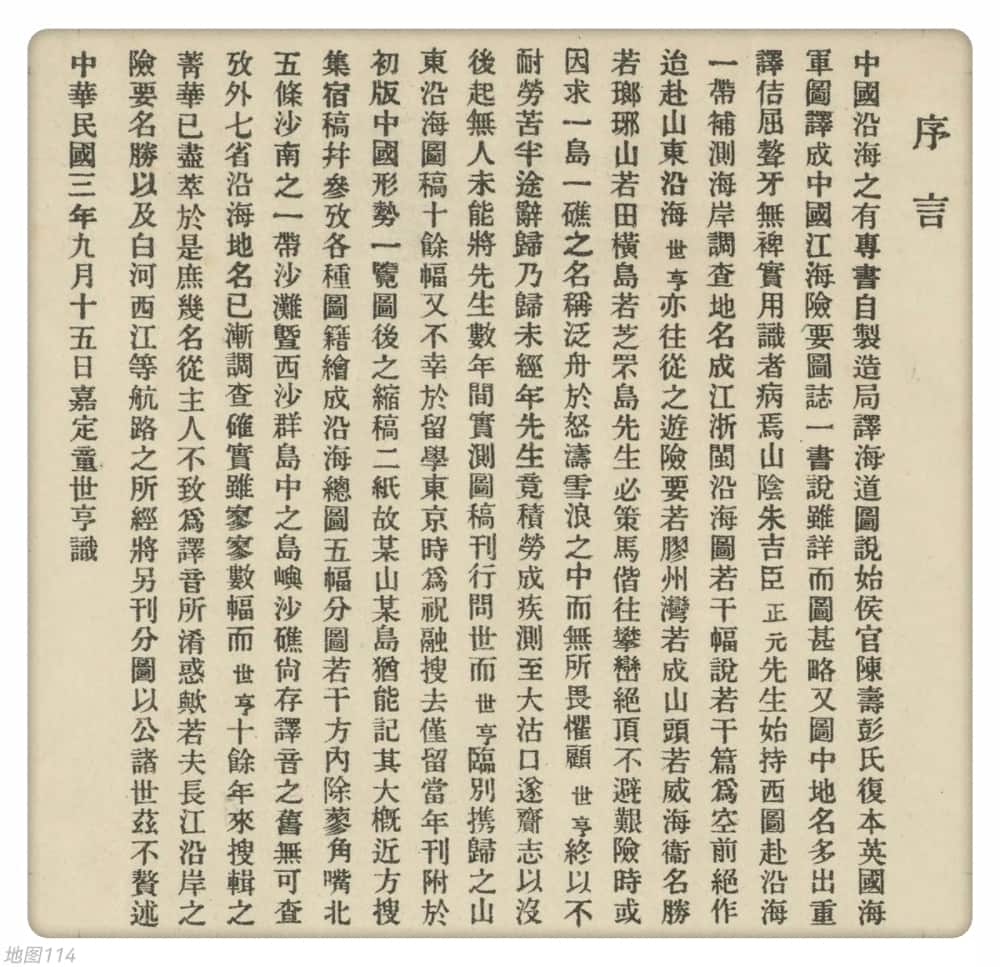 序言
中國沿海之有專書自製造局譯海道圖說始侯官陳壽彭氏復本英國海
軍圖譯成中國江海險要圖誌一書說雖詳而圖甚略又圖中地名多出重
譯佶屈聱牙無裨實用識者病焉山陰朱吉臣正元先生始持西圖赴沿海
一帶補測海岸調查地名成江浙閩沿海圖若干幅說若干篇爲空前絕作
迨赴山東沿海世亨亦往從之遊險要若膠州灣若成山頭若威海衞名勝
若瑯琊山若田橫島若芝罘島先生必策馬偕往攀巒絕頂不避艱險時或
因求一島一礁之名稱泛舟於怒濤雪浪之中而無所畏懼顧世亨終以不
耐勞苦半途辭歸乃歸未經年先生竟積勞成疾測至大沽口遂齎志以沒
後起無人未能將先生數年間實測圖稿刊行問世而世亨臨別携歸之山
東沿海圖稿十餘幅又不幸於留學東京時爲祝融搜去僅留當年刊附於
初版中國形勢一覽圖後之縮稿二紙故某山某島猶能記其大槪近方搜
集宿稿幷參攷各種圖籍繪成沿海總圖五幅分圖若干方內除蓼角嘴北
五條沙南之一帶沙灘曁西沙群島中之島嶼沙礁尙存譯音之舊無可査
攷外七省沿海地名已漸調查確實雖寥寥數幅而世亨十餘年來搜輯之
菁華已盡萃於是庶幾名從主人不致爲譯音所淆惑歟若夫長江沿岸之
險要名勝以及白河西江等航路之所經將另刊分圖以公諸世茲不贅述
中華民國三年九月十五日嘉定童世亨識
地图114